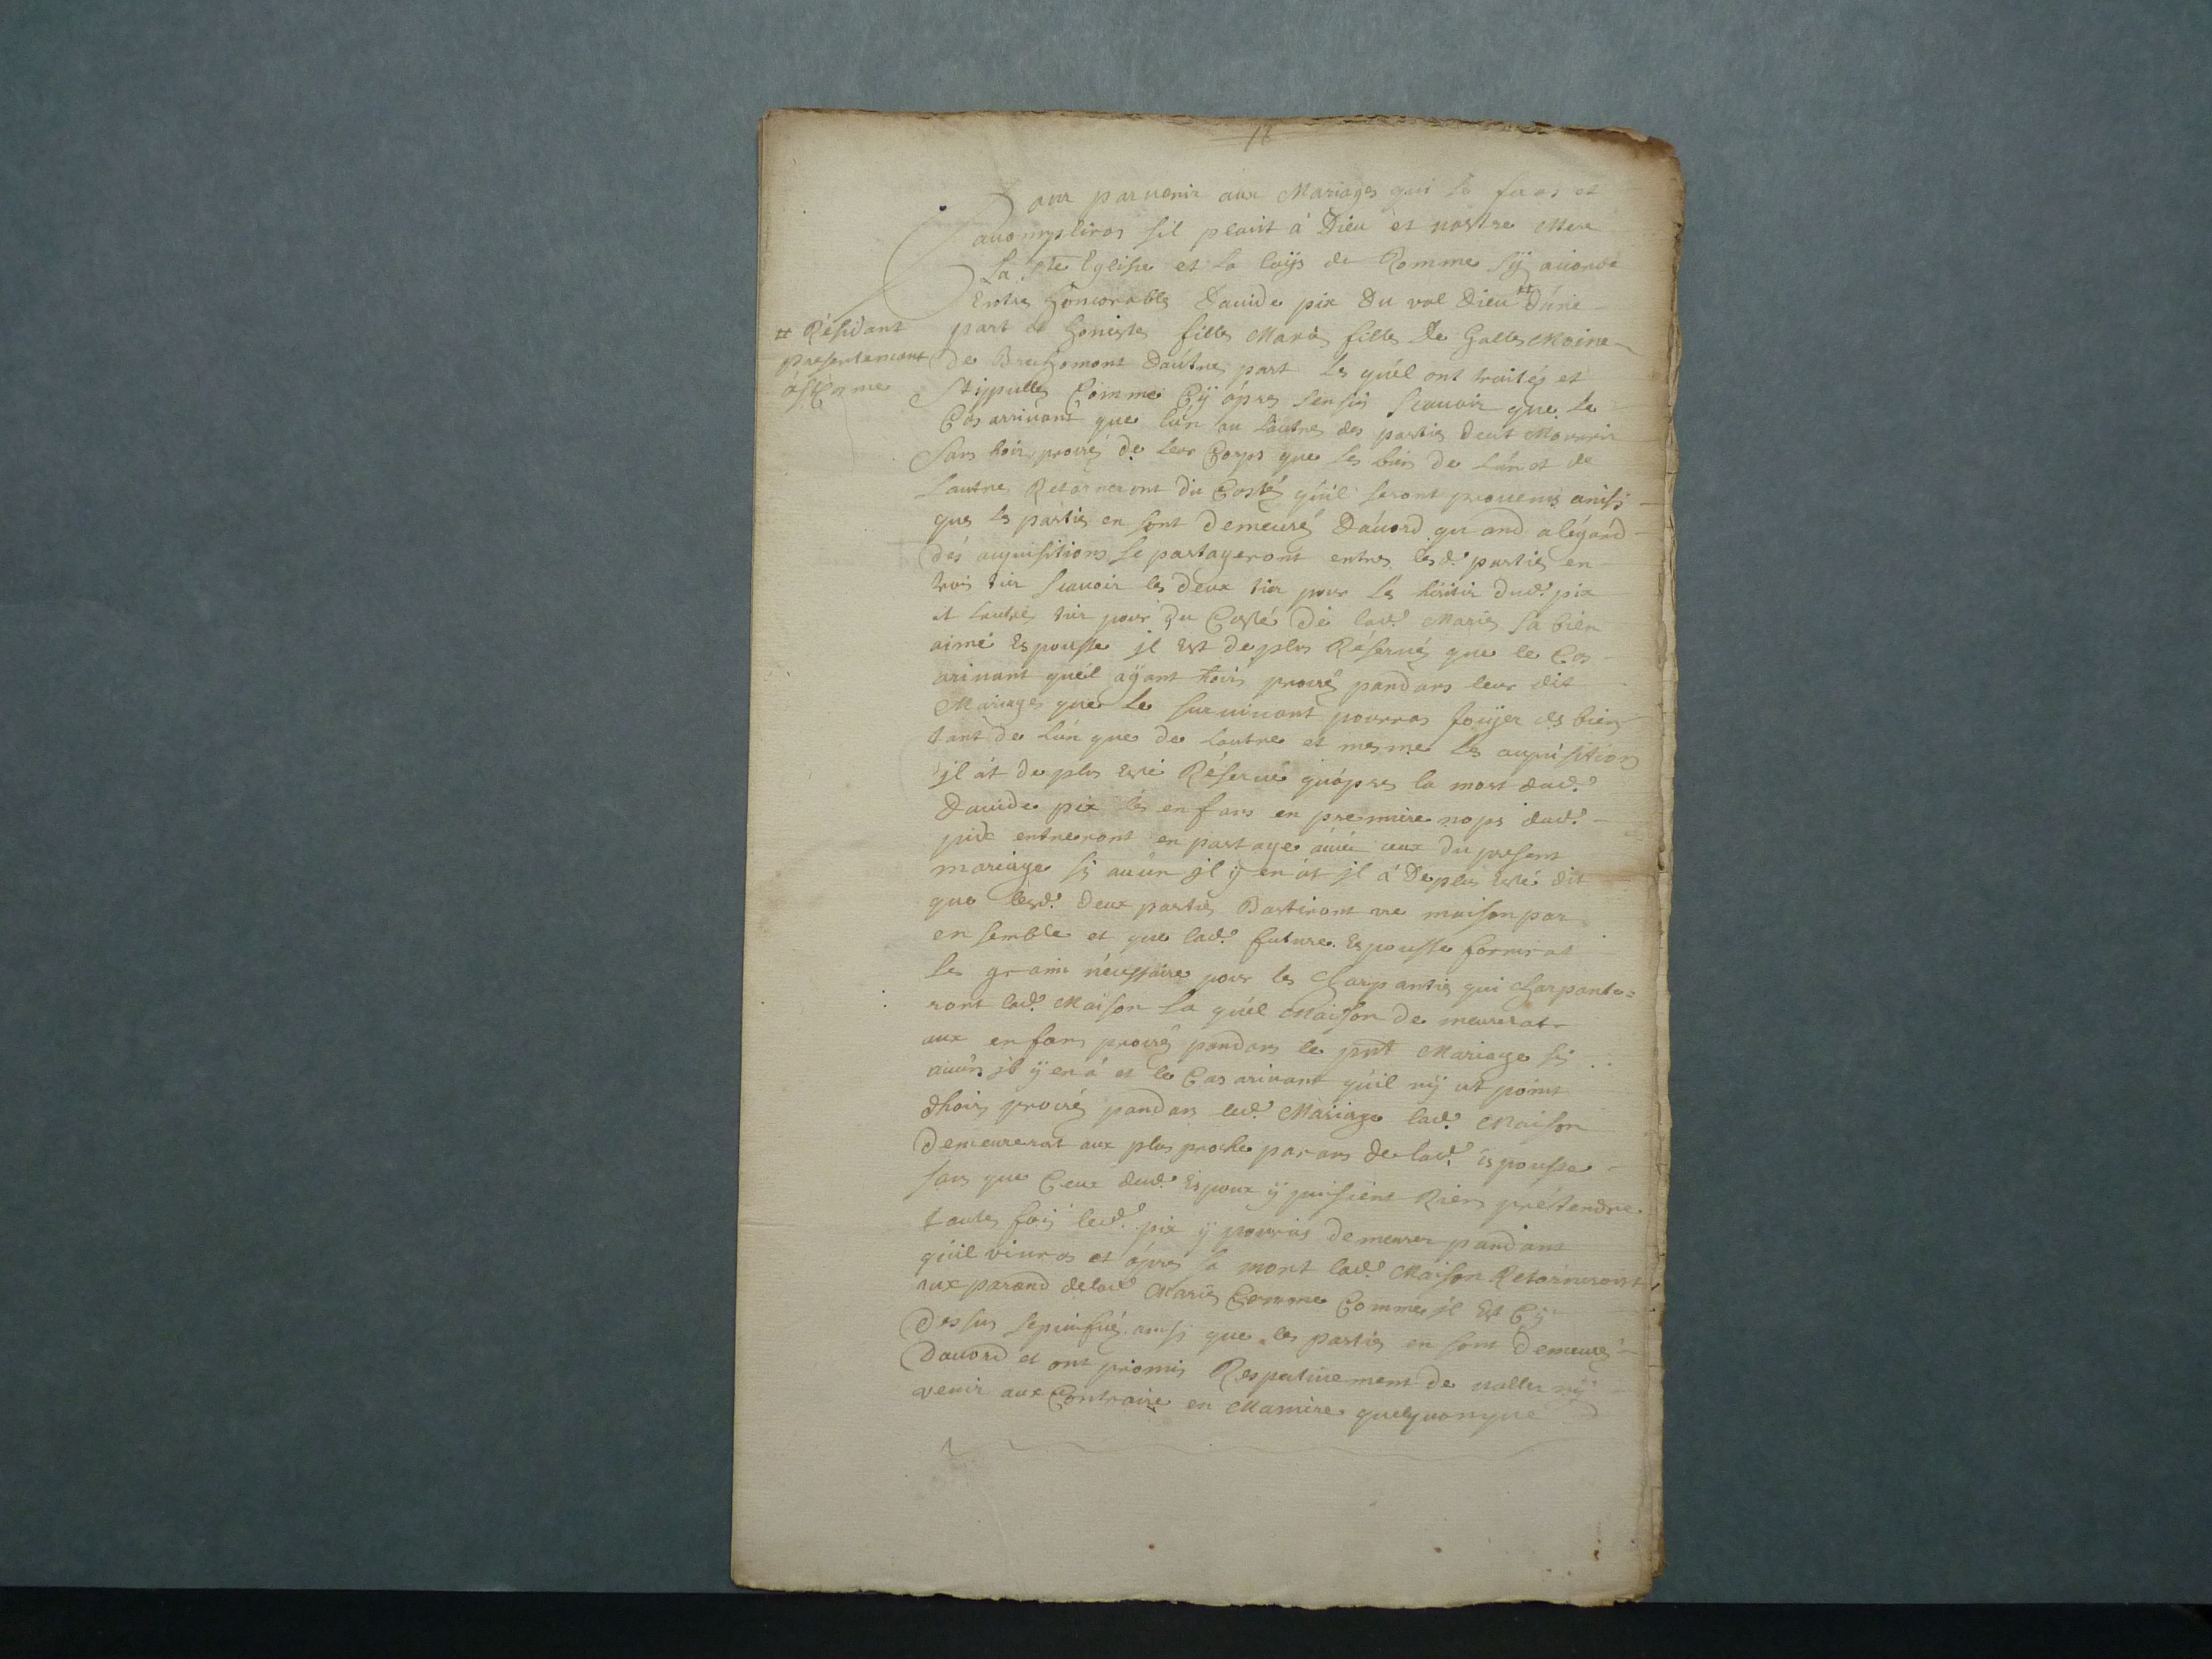 16
Pour parvenir aux Mariages qui se feras et
accompliras sil plaist à Dieu et nostre Mere
La Ste Eglisse et La loÿs de Romme sÿ acorde
Entre honnorable Dauide pix Du val Dieu ⌗ Dúne
⌗ Résidant
presentement
part et honieste fille Mariè fille De Galle Moine
De Brehomont Daútre part Les quél ont traités et
Stippulle Comme Cÿ ápres sensui scauoir que Le
Cas arriuant que lún ou Lautre des partie deut Mourrir
Sans hoir, procréé De Leur Corps que les bien De Lún et de
Lautre Retorneront Du Costé qúil seront prouenus ainssi
que Les partie en sont Demeuré Dácord quand a légard
Dés acquisitions Se partageront entre lesd. partie en
trois tier Scauoir les Deux tier pour Les héritir dud. pix
et Lautre tier pour Du Costé De lad. Marie Sa bien
aimé Espousse jl Est De plus Réserué que le Cas
ariuant quél aÿant hoirs procréé pandans leur dit
Mariage que Le suruiuant pourras Joüÿer des bien
tant De Lún que De Lautre et mesme Les acquisition
jl át De plus Esté Réserué quápres la mort dud.
Dauide pix les enfans en premmiere nops dud.
pix entreront en partage auec ceux Du present
mariage Si aucún jl ÿ en át jl á De plus Esté dit
que lesd. Deux partie Bastiront vne maison par
ensemble et que lad. future Espousse fornirat
Les grain nécessaire pour les Charpantié qui Charpante=
ront lad. Maison La quél Maison De meurerat
aux enfans procréé pandans le pnt Mariage Si
aucún jl ÿ en á et le Cas ariuant qúil nÿ ut point
dhoirs procréé pandans led. Mariage lad. Maison
Demeurerat aux plus proche parans De lad. Espousse
sans que Ceux dud. Espoux ÿ puisient Rien prétendre
toutes fois led. pix ÿ pouras Demeurer pandant
qúil viuras et ápres sa mort lad. Maison Retorneront
aux parand de lad. Marie Comme Comme jl Est Cÿ
Dessus Sepcifié ainsi que les partie en sont Demeuré
Dacord et ont promis Respectiuement De naller nÿ
venir aux Contraire en Maniere quelquonque